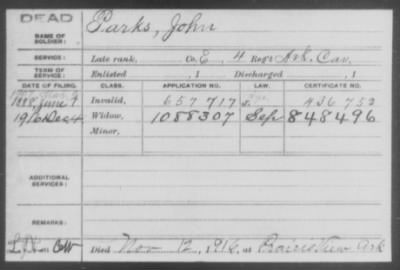 DEAD
NAME OF SOLDIER: Parks, John
SERVICE: Late rank, Co. E, 4 Reg't Ark. Cav.
TERM OF SERVICE: Enlisted , 1 Discharged , 1
DATE OF FILING. CLASS. APPLICATION NO. LAW. CERTIFICATE NO.
1888, June 9 Invalid, 657 717 436 752
1916 Dec 4 Widow, 1088307 Sep 848496
Minor,
ADDITIONAL SERVICES:
REMARKS:
Died Nov 12, 1916, at Prairie View Ark